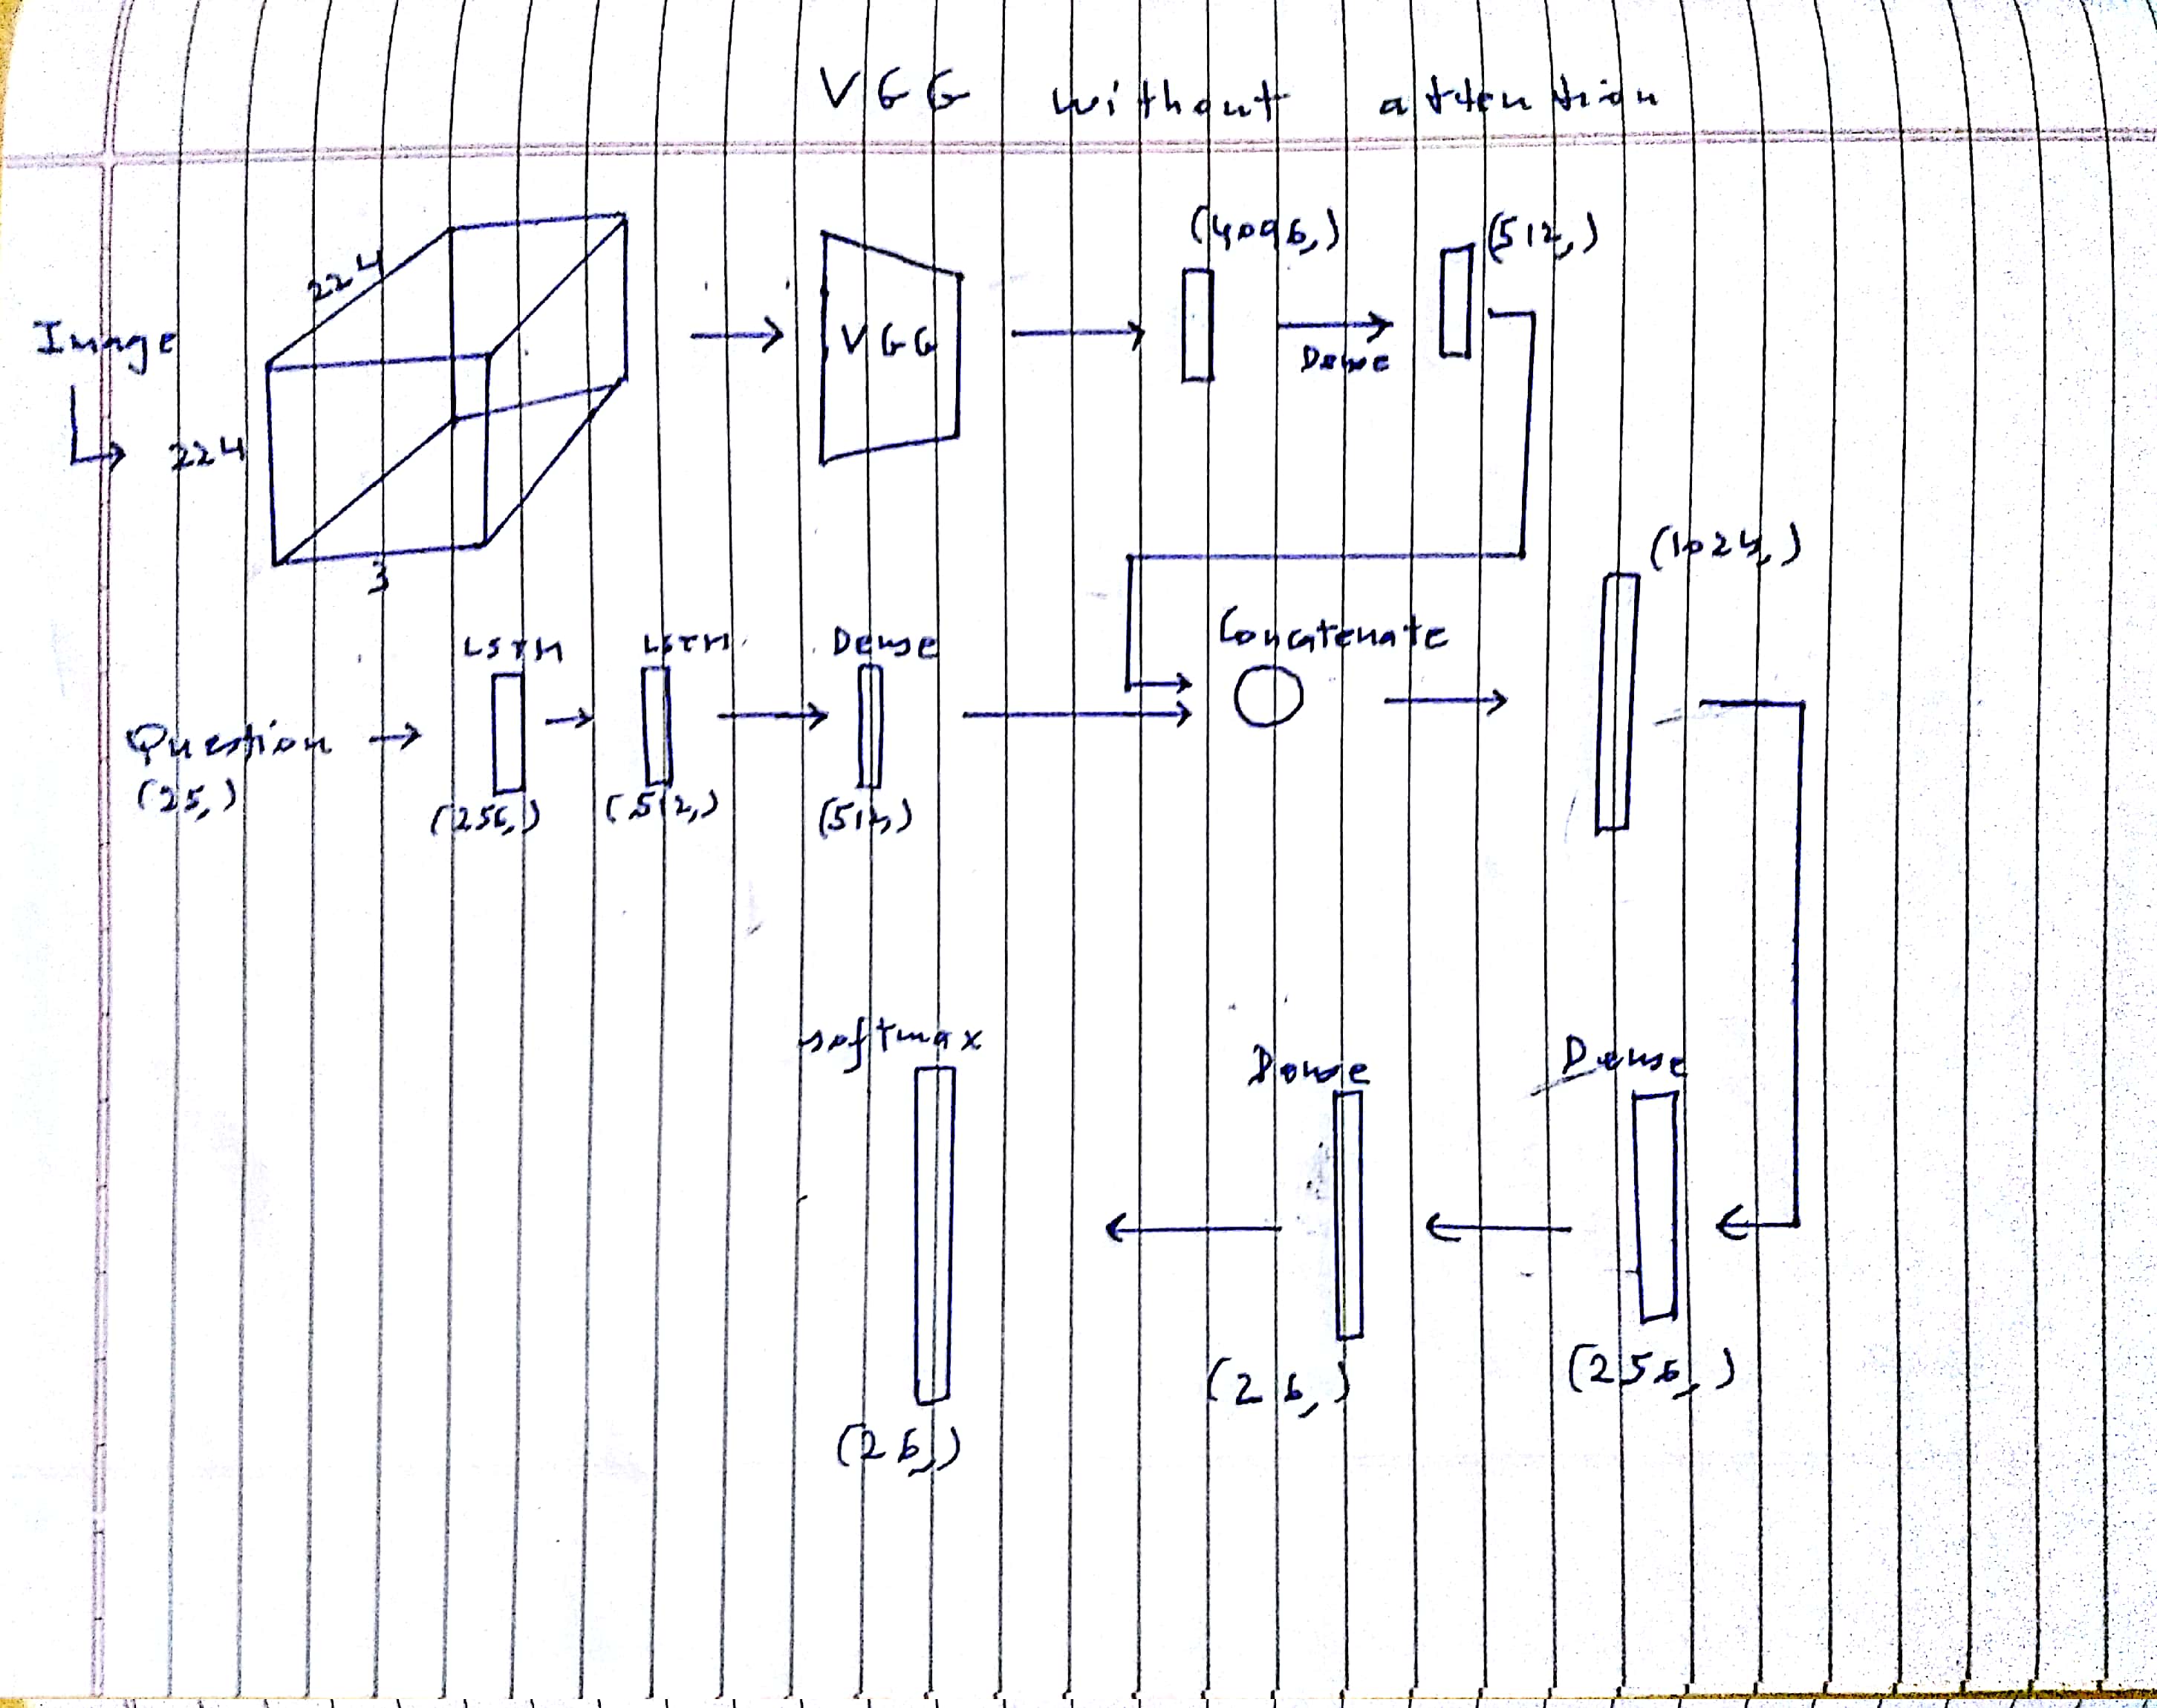 VGG without attention
224
Image
224
3
VGG
(4096,)
Dense
(512,)
(1024,)
Concatenate
LSTM
LSTM
Dense
Question
(25,)
(256,)
(512,)
(512,)
softmax
Dense
Dense
(26,)
(26,)
(256,)